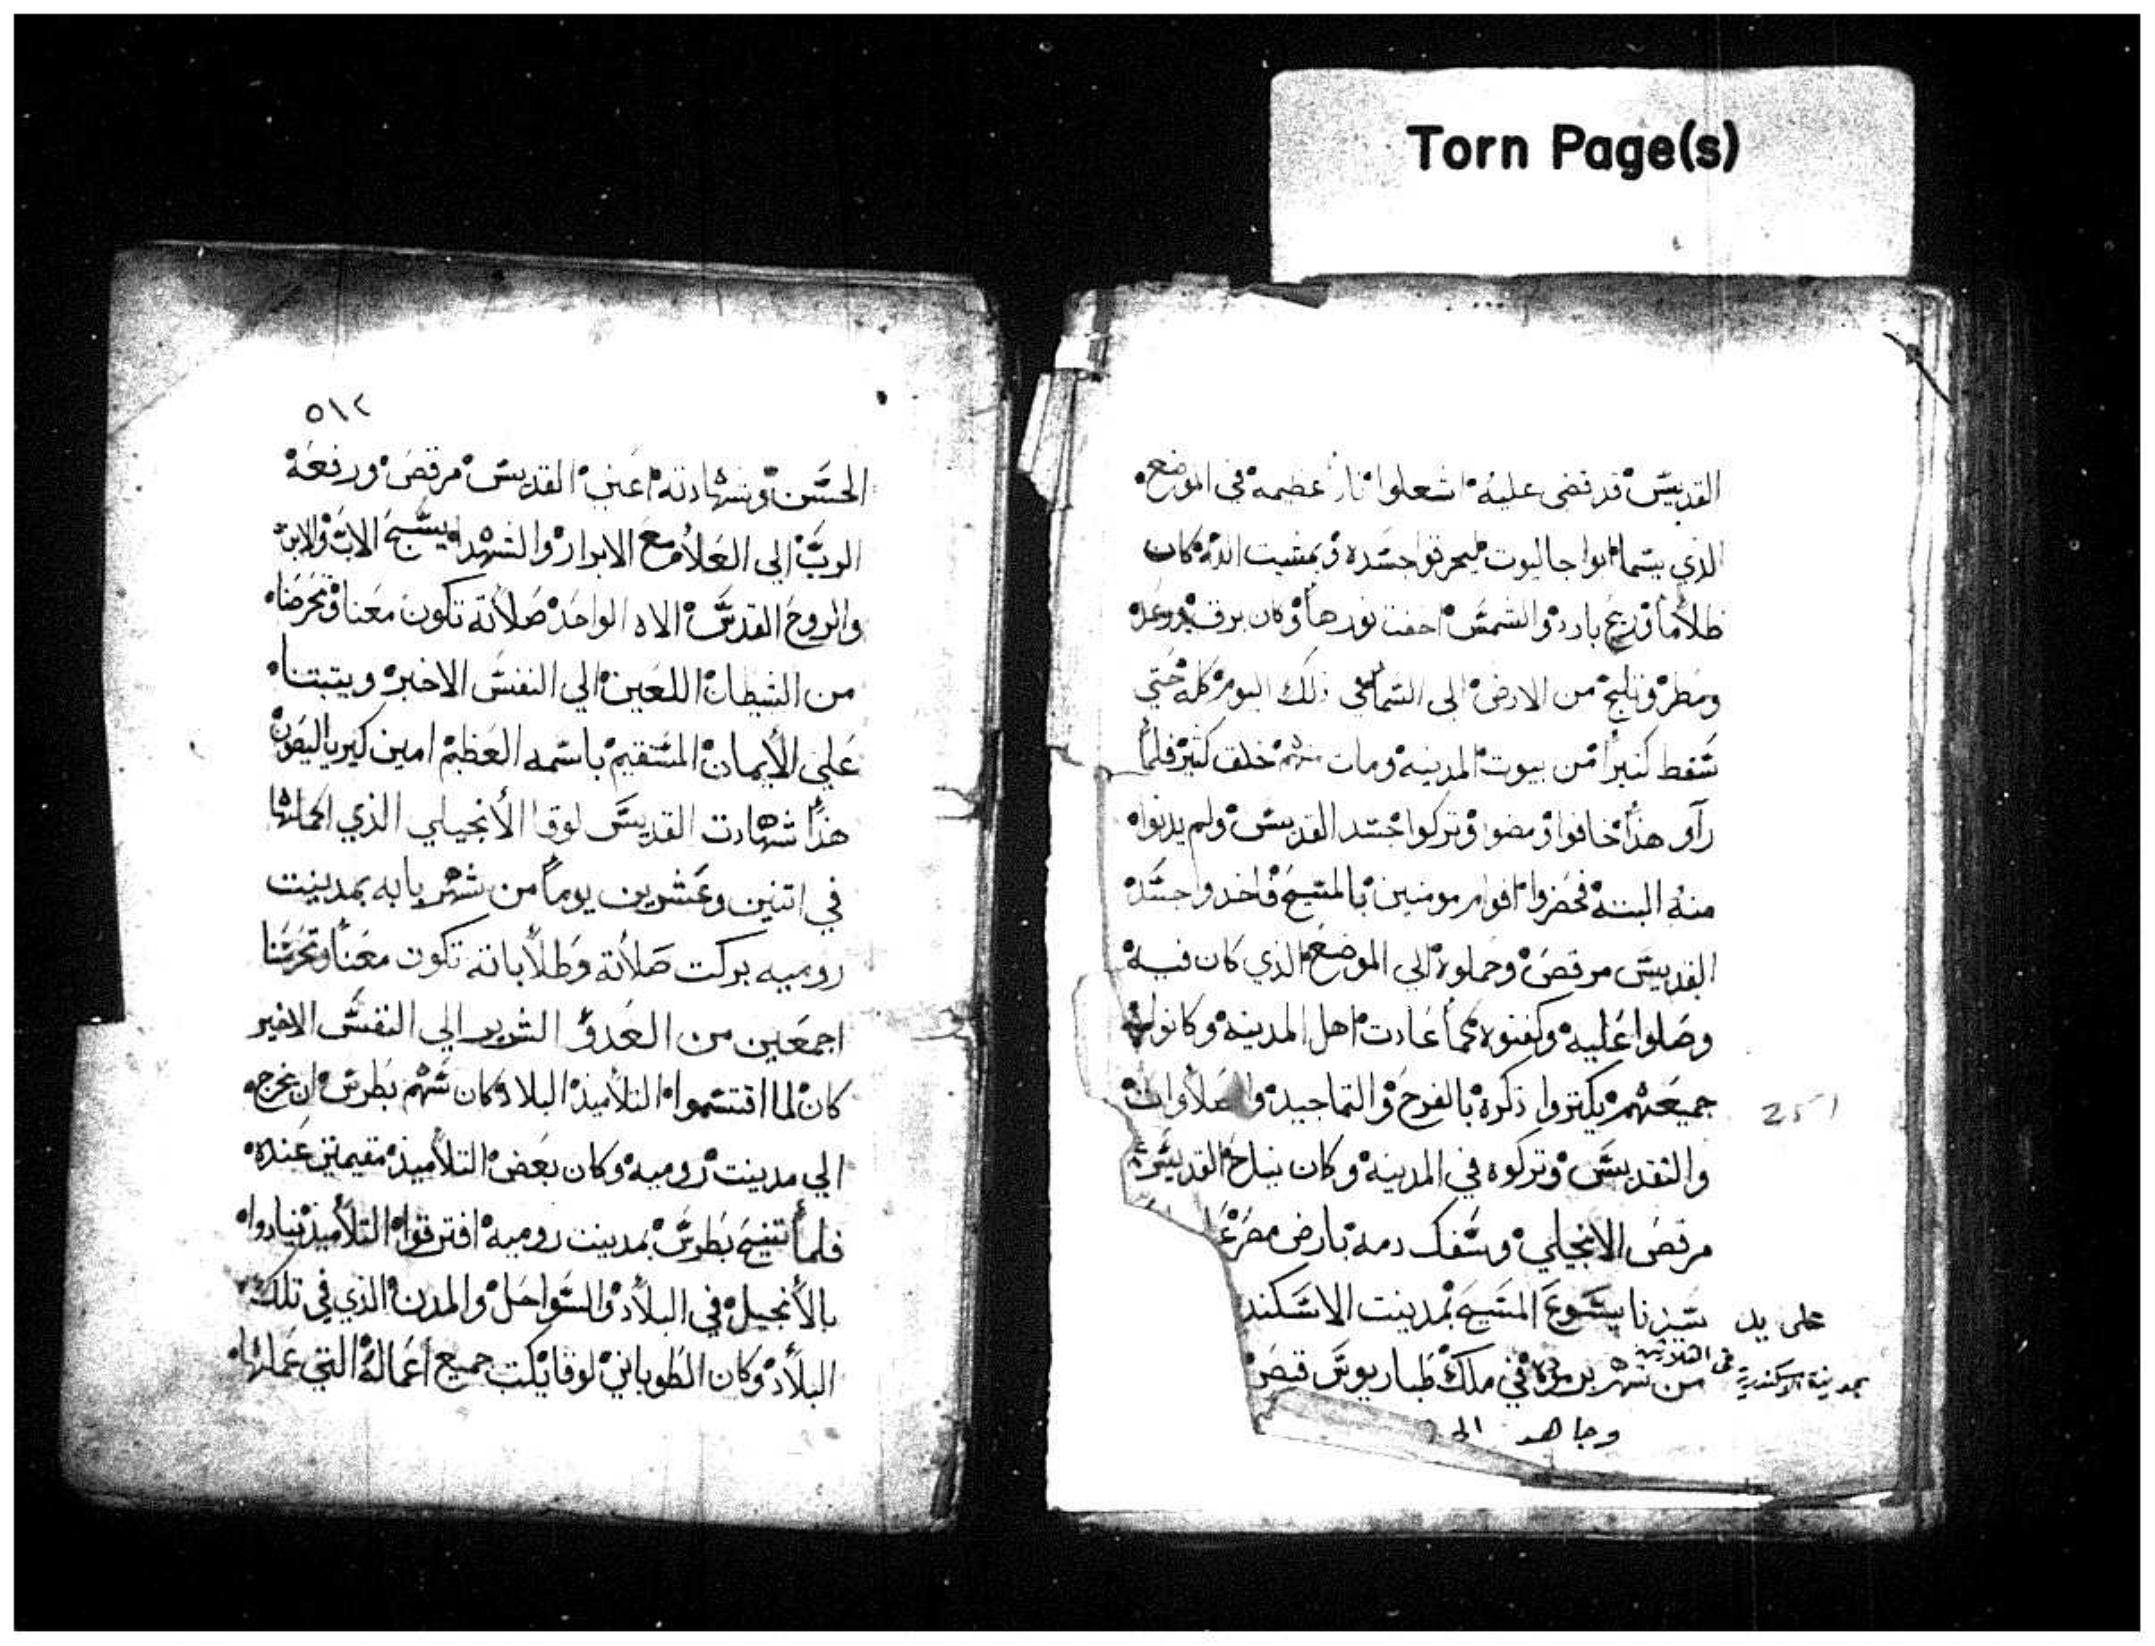 Torn Page(s)
القديس قد قضى عليه اشعلوا نار عضيمه في الموضع
الذي يسما ابوا جالبوت ليحرقوا جسده وبمشيت الله كان
ظلاما وريح بارد والشمس اخفت نورها وكان برق ورعد
ومطر وثلج من الارض الى السما في ذلك اليوم كله حتي
سقط كثيرا من بيوت المدينه ومات منهم خلق كثير فلما
رآو هذا خافوا ومضوا وتركوا جسد القديس ولم يدنوا
منه البته فحضروا اقوام مومنين بالمسيح واخدوا جسد
القديس مرقص وحملوه الي الموضع الذي كان فيه
وصلوا عليه وكفنوه كما عادت اهل المدينه وكانوا
جميعهم يكتروا ذكره بالفرح والتماجيد والصلاوات
والتقديس وتركوه في المدينه وكان نياح القديس
مرقص الانجيلي وسفك دمه بارض مصر
على يد سيدنا يسوع المسيح بمدينت الاسكند
بمدينة الاسكندرية في الثلاثين من شهر برموده في ملك طباريوس قيصر
وجاهد الى
٥١٢
الحسن وشهادته اعني القديس مرقص ورفعه
الرب الي العلا مع الابرار والشهدا يسبح الاب والابن
والروح القدس الاه الواحد صلاته تكون معنا وتحرصنا
من الشيطان اللعين الي النفس الاخير ويتبتنا
علي الأيمان المستقيم باسمه العظيم امين كيرياليصون
هذا شهادت القديس لوقا الأنجيلي الذي اكملها
في اتنين وعشرين يوما من شهر بابه بمدينت
روميه بركت صلاته وطلاباته تكون معنا وتحرسنا
اجمعين من العدو الشرير الي النفس الاخير
كان لما اقتسموا التلاميذ البلاد كان سهم بطرس ان يخرج
الي مدينت روميه وكان بعض التلاميذ مقيمين عنده
فلما تنيح بطرس بمدينت روميه افترقوا التلاميذ نيادوا
بالأنجيل في البلاد والسواحل والمدن الذي في تلك
البلاد وكان الطوباني لوقا يكتب جميع أعماله التي عملها